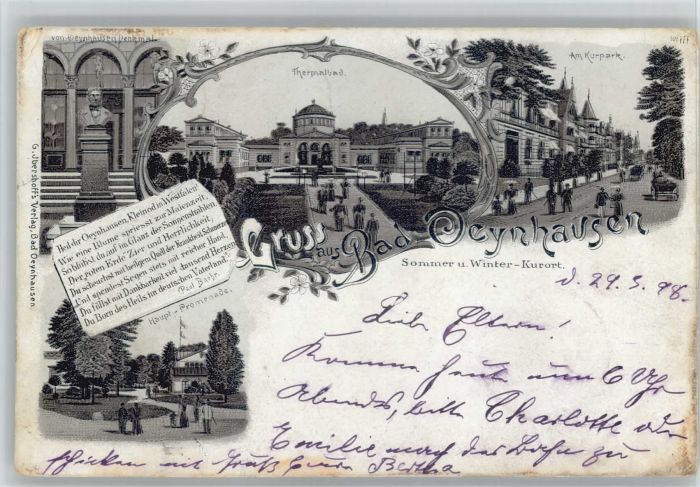 von Oeynhausen Denkmal
Thermalbad.
Am Kurpark.
G. Ibershoff's Verlag, Bad Oeynhausen.
Heil dir Oeynhausen, Kleinod in Westfalen
Wie eine Blume spriesst zur Maienzeit,
So blühst du auf im Glanz der Sonnenstrahlen
Der roten Erde Zier und Herrlichkeit.
Du scheuchst mit heilgem Quell der Krankheit Schmerzen
Und spendest Segen stets mit reicher Hand.
Du füllst mit Dankbarkeit viel tausend Herzen
Du Born des Heils im deutschen Vaterland.
Paul Bähr.
Gruss aus Bad Oeynhausen
Sommer u. Winter-Kurort.
Haupt-Promenade.
d. 29.5.98.
Liebe Eltern!
Komme heute um 6 Uhr
Abends, bitte Charlotte oder
Emilie nach der Bahn zu
schicken mit Gruß Eure Bertha